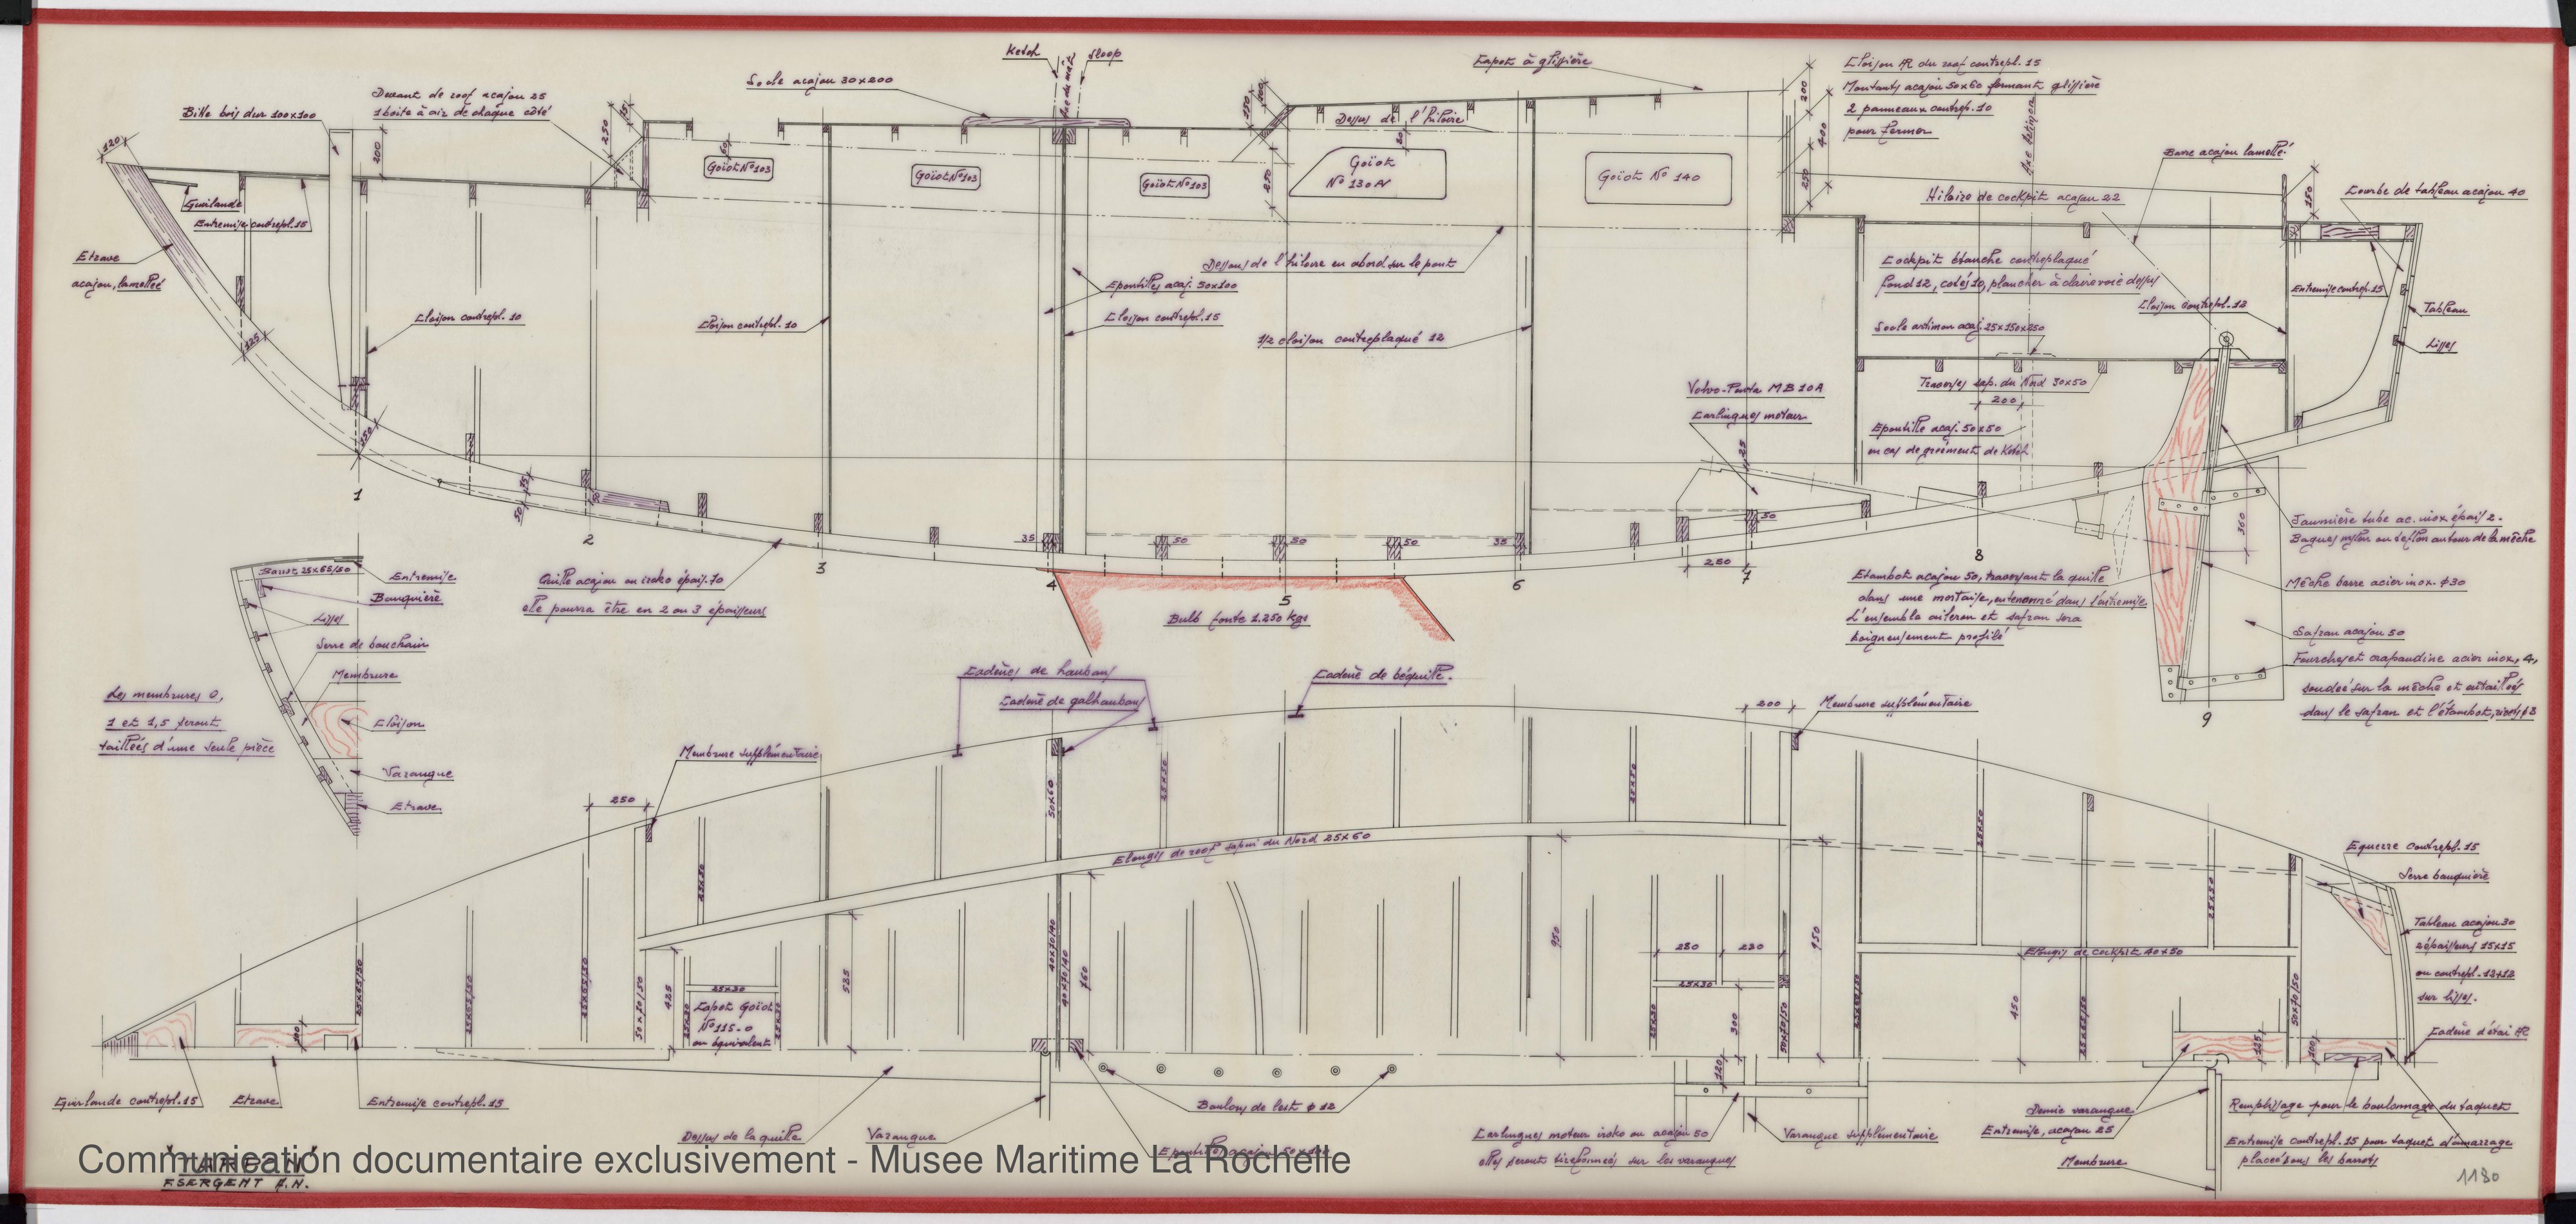 Ketch
Sloop
Axe du mât
Capot à glissière
Cloison AR du roof contrepl. 15
Montants acajou 50x60 formant glissière
2 panneaux contrepl. 10
pour fermer
Socle acajou 30x200
Devant de roof acajou 25
1 boite à air de chaque côté
Bitte bois dur 100x100
120
200
250
75
60
150
100
Dessus de l'hiloire
80
200
400
250
Axe tétinger
Barre acajou lamellé
Courbe de tableau acajou 40
Hiloire de cockpit acajou 22
150
Goïot N°103
Goïot N°103
Goïot N°103
Goïot
N° 130 AV
Goïot N° 140
250
Guirlande
Entremise contrepl. 15
Etrave
acajou, lamellée
Dessous de l'hiloire en abord sur le pont
Epontilles acaj. 50x100
Cloison contrepl. 15
Cloison contrepl. 10
Cloison contrepl. 10
1/2 cloison contreplaqué 12
Cockpit étanche contreplaqué
fond 12, cotés 10, plancher à claire voie dessus
Cloison contrepl. 12
Entremise contrepl. 15
Tableau
Lisses
Socle artimon acaj. 25x150x250
Traverses sap. du Nord 30x50
200
Epontille acaj. 50x50
en cas de gréement de Ketch
Volvo-Penta MB 10A
Carlingues moteur
25
125
150
50
75
50
35
50
50
50
35
50
250
1
2
3
4
5
6
7
8
9
360
Jaumière tube ac. inox épais. 2.
Bagues nylon ou teflon autour de la mèche
Mèche barre acier inox. φ30
Safran acajou 50
Fourches et crapaudine acier inox, 4,
soudées sur la mèche et entaillées
dans le safran et l'étambot, rivets φ8
Etambot acajou 50, traversant la quille
dans une mortaise, entenonné dans l'entremise
L'ensemble aileron et safran sera
soigneusement profilé
Quille acajou ou iroko épais. 70
elle pourra être en 2 ou 3 épaisseurs
Bulb fonte 1.250 kgs
Barrot 25x65/50
Entremise
Bauquière
Lisses
Serre de bouchain
Membrure
Cloison
Varangue
Etrave
Les membrures 0,
1 et 1,5 seront
taillées d'une seule pièce
Cadènes de haubans
Cadène de galhaubans
Cadène de béquille.
Membrure supplémentaire
Membrure supplémentaire
250
200
50x60
25x50
25x50
25x50
25x50
25x50
Elongis de roof sapin du Nord 25x60
Equerre contrepl. 15
Serre bauquière
Tableau acajou 30
2 épaisseurs 15x15
ou contrepl. 12+12
sur lisses.
Cadène d'étai AR
Elongis de cockpit 40x50
25x65/50
25x65/50
25x65/50
50x70/50
425
25x30
25x30
25x30
Capot Goïot
N° 115-0
ou équivalent
535
40x70/40
40x70/40
760
950
280
230
25x30
25x30
300
120
50x70/50
950
450
25x65/50
50x70/50
125
100
100
Guirlande contrepl. 15
Etrave
Entremise contrepl. 15
Dessus de la quille
Varangue
Epontilles acajou 50x100
Boulons de lest φ 12
Carlingues moteur iroko ou acajou 50
elles seront tirefonnées sur les varangues
Varangue supplémentaire
Demie varangue
Entremise, acajou 25
Membrure
Remplissage pour le boulonnage du taquet
Entremise contrepl. 15 pour taquet d'amarrage
placée sous les barrots
1130
"TAREAN"
F. SERGENT A.N.
Communication documentaire exclusivement - Musee Maritime La Rochelle